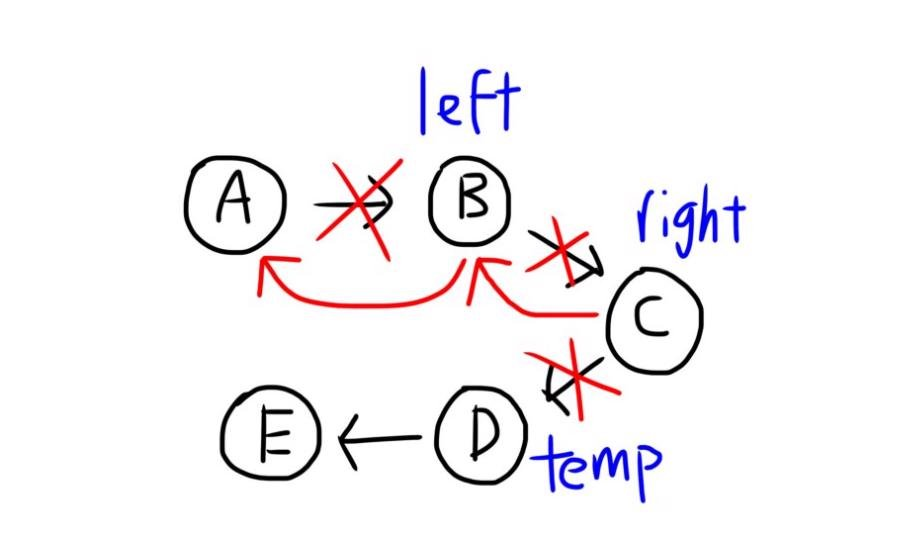 left
A
B
right
C
E
D
temp